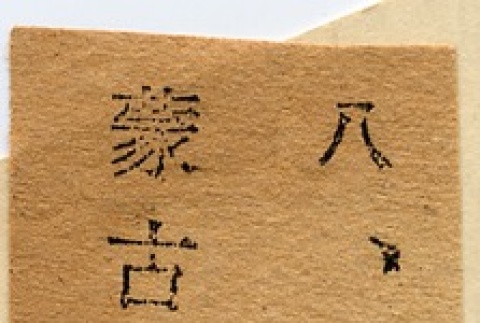 八、
蒙古